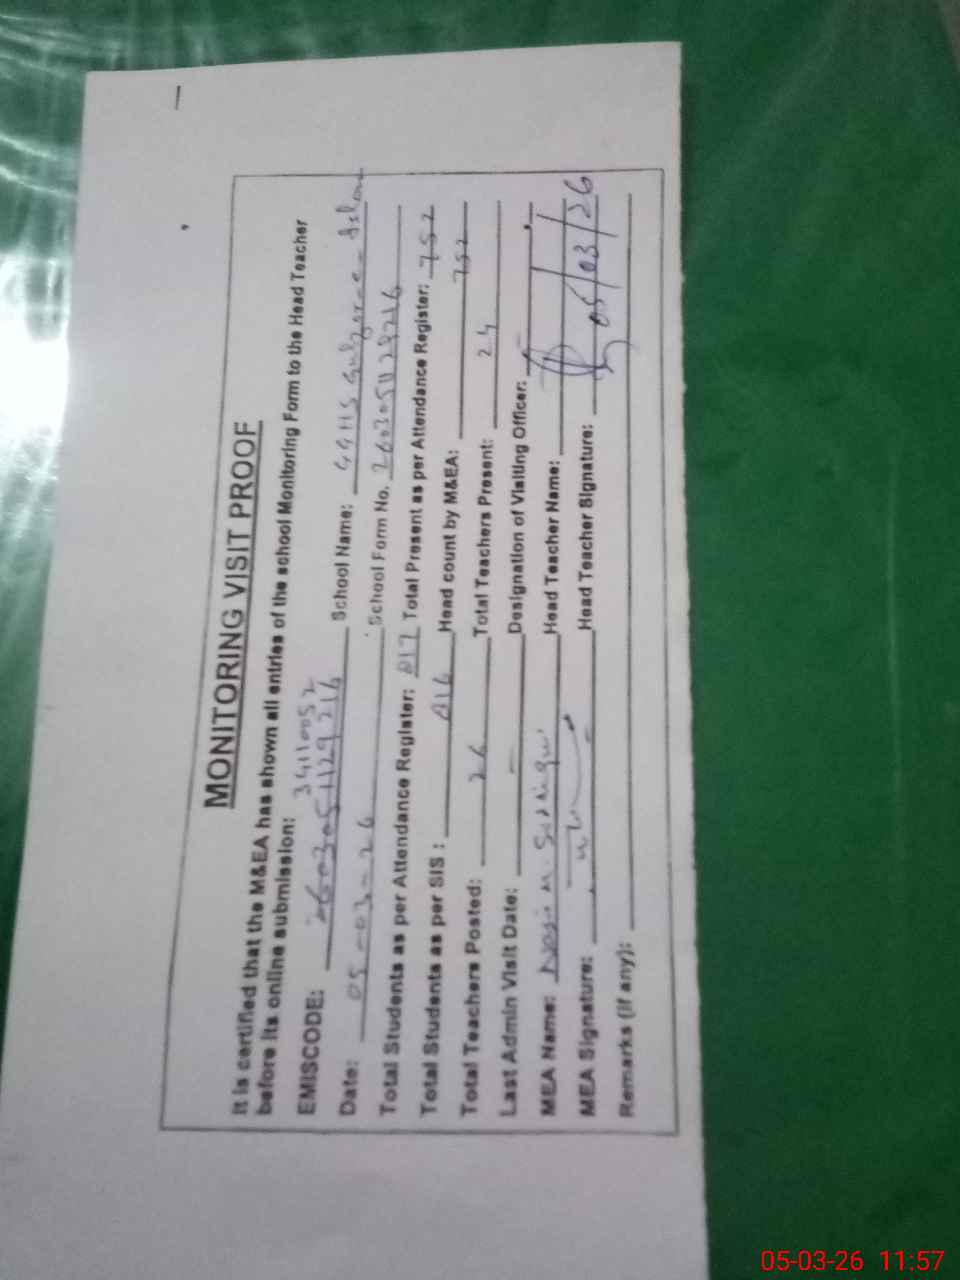 MONITORING VISIT PROOF
It is certified that the M&EA has shown all entries of the school Monitoring Form to the Head Teacher
before its online submission:
34110052
EMISCODE: 2603051129216 School Name: GGHS Gulzar-e-Islam
Date: 05-03-26 School Form No. 2603051129216
Total Students as per Attendance Register: 817 Total Present as per Attendance Register: 752
Total Students as per SIS: 816 Head count by M&EA: 752
Total Teachers Posted: 26 Total Teachers Present: 24
Last Admin Visit Date: - Designation of Visiting Officer:
MEA Name: Head Teacher Name:
MEA Signature: Head Teacher Signature: 05/03/26
Remarks (if any):
05-03-26 11:57